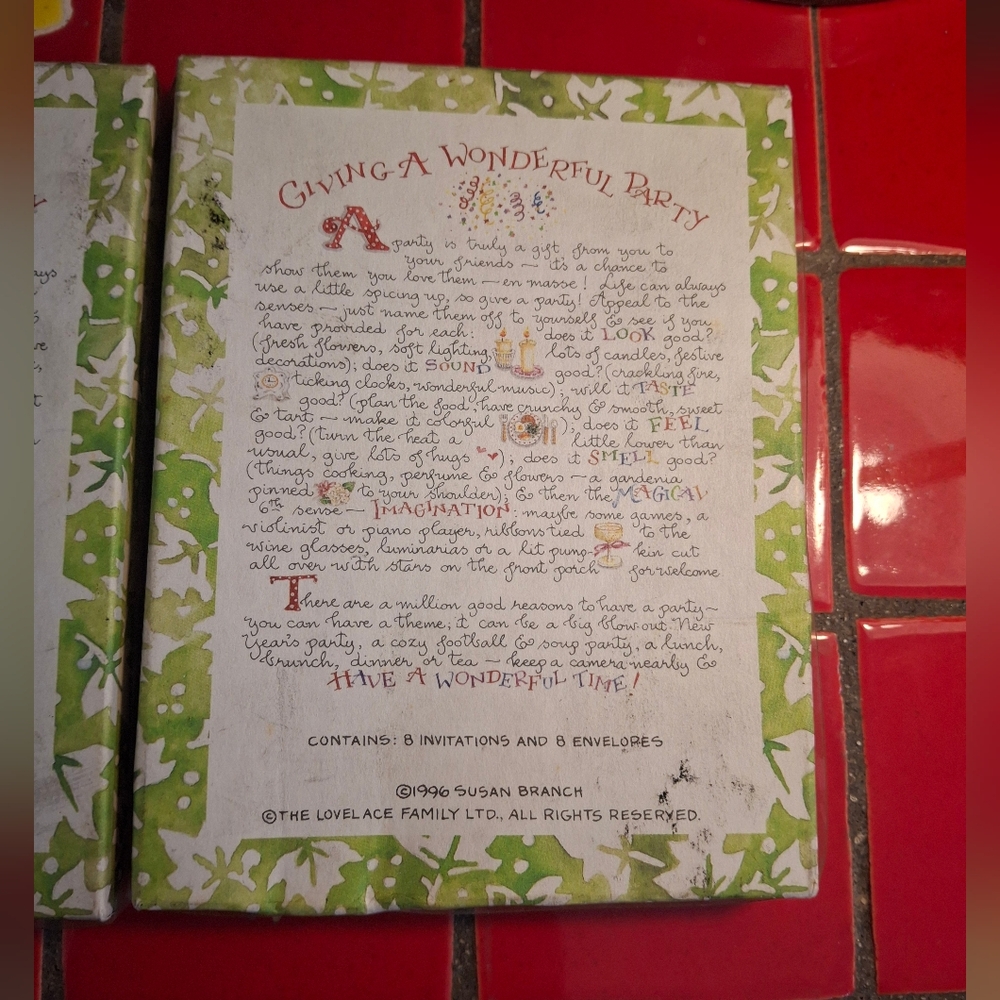 GIVING A WONDERFUL PARTY
A party is truly a gift, from you to
your friends — it's a chance to
show them you love them — en masse! Life can always
use a little spicing up, so give a party! Appeal to the
senses — just name them off to yourself & see if you
have provided for each: does it LOOK good?
(fresh flowers, soft lighting, lots of candles, festive
decorations); does it SOUND good? (crackling fire,
ticking clocks, wonderful music); will it TASTE
good? (plan the food, have crunchy & smooth, sweet
& tart — make it colorful); does it FEEL
good? (turn the heat a little lower than
usual, give lots of hugs); does it SMELL good?
(things cooking, perfume & flowers — a gardenia
pinned to your shoulder); & then the MAGICAL
6th sense — IMAGINATION: maybe some games, a
violinist or piano player, ribbons tied to the
wine glasses, luminarias or a lit pump-kin cut
all over with stars on the front porch for welcome
There are a million good reasons to have a party —
you can have a theme; it can be a big blow-out New
Year's party, a cozy football & soup party, a lunch,
brunch, dinner or tea — keep a camera nearby &
HAVE A WONDERFUL TIME!
CONTAINS: 8 INVITATIONS AND 8 ENVELOPES
©1996 SUSAN BRANCH
©THE LOVELACE FAMILY LTD., ALL RIGHTS RESERVED.